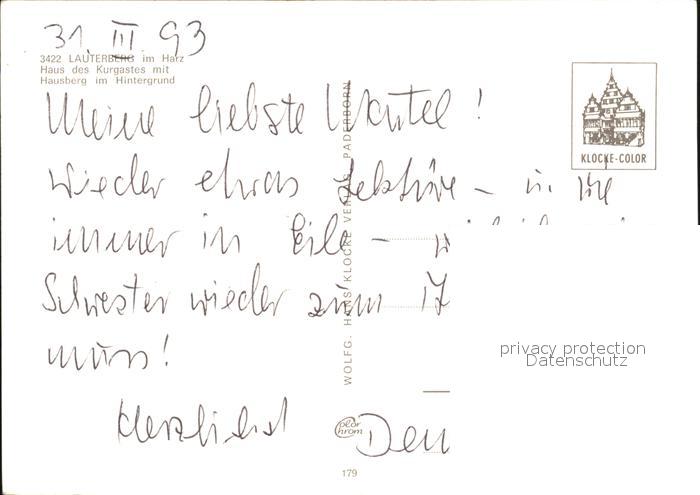 31. III 93
3422 LAUTERBERG im Harz
Haus des Kurgastes mit
Hausberg im Hintergrund
Meine liebste
wieder etwas Lektüre – u. wie
immer in Eile –
Schwester wieder zum 17
muss!
Herzlichst
WOLFG. HANS KLOCKE VERLAG, PADERBORN
KLOCKE-COLOR
privacy protection
Datenschutz
color
chrom
179